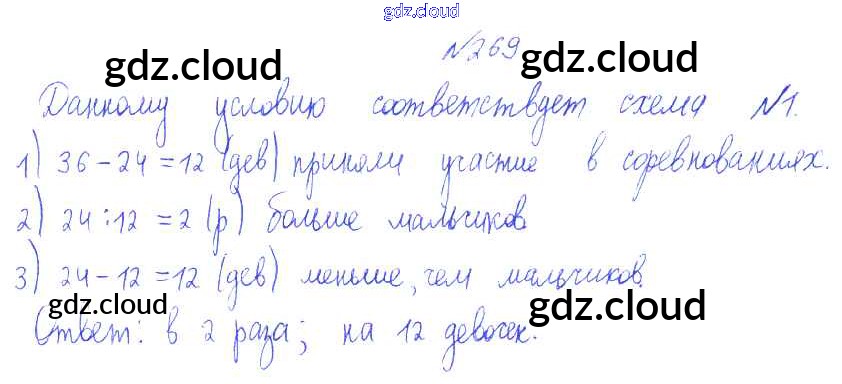 gdz.cloud
№269
gdz.cloud gdz.cloud
Данному условию соответствует схема №1.
1) 36 - 24 = 12 (дев) приняли участие в соревнованиях.
2) 24 : 12 = 2 (р) больше мальчиков
3) 24 - 12 = 12 (дев) меньше, чем мальчиков.
gdz.cloud gdz.cloud
Ответ: в 2 раза; на 12 девочек.